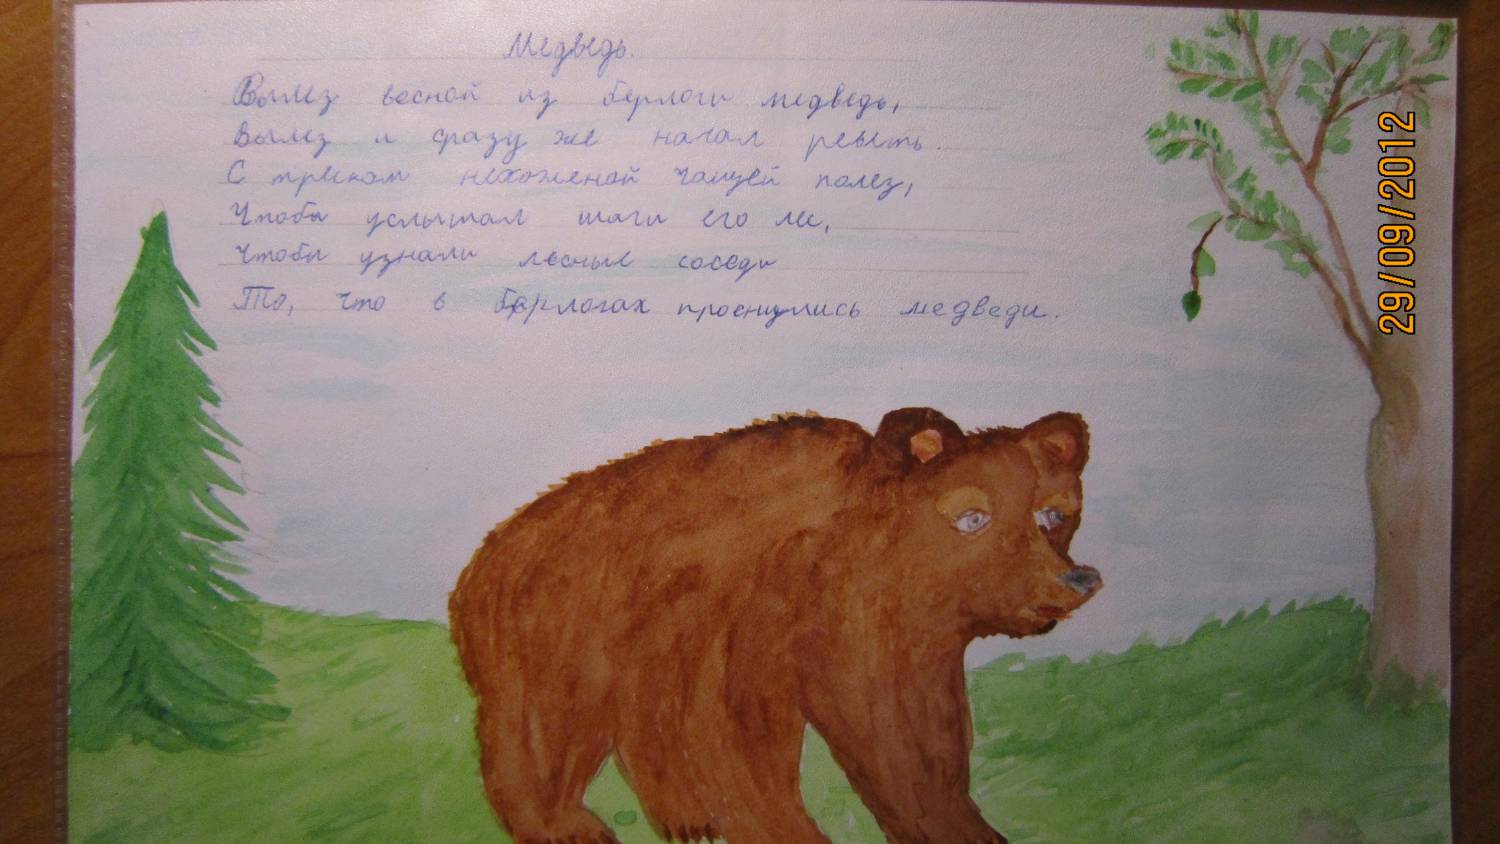 Медведь.
Вылез весной из берлоги медведь,
Вылез и сразу же начал реветь.
С треском нехоженой чащей полез,
Чтобы услышал шаги его лес,
Чтобы узнали лесные соседи
То, что в берлогах проснулись медведи.
29/09/2012